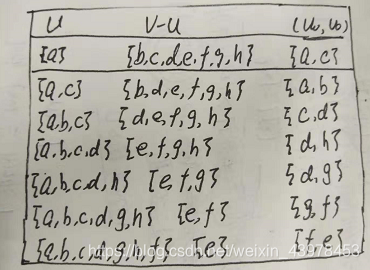 U V-U (u₀, v₀)
{a} {b,c,d,e,f,g,h} {a,c}
{a,c} {b,d,e,f,g,h} {a,b}
{a,b,c} {d,e,f,g,h} {c,d}
{a,b,c,d} {e,f,g,h} {d,h}
{a,b,c,d,h} {e,f,g} {d,g}
{a,b,c,d,g,h} {e,f} {g,f}
{a,b,c,d,g,h,f} {e} {f,e}
https://blog.csdn.net/weixin_43978453